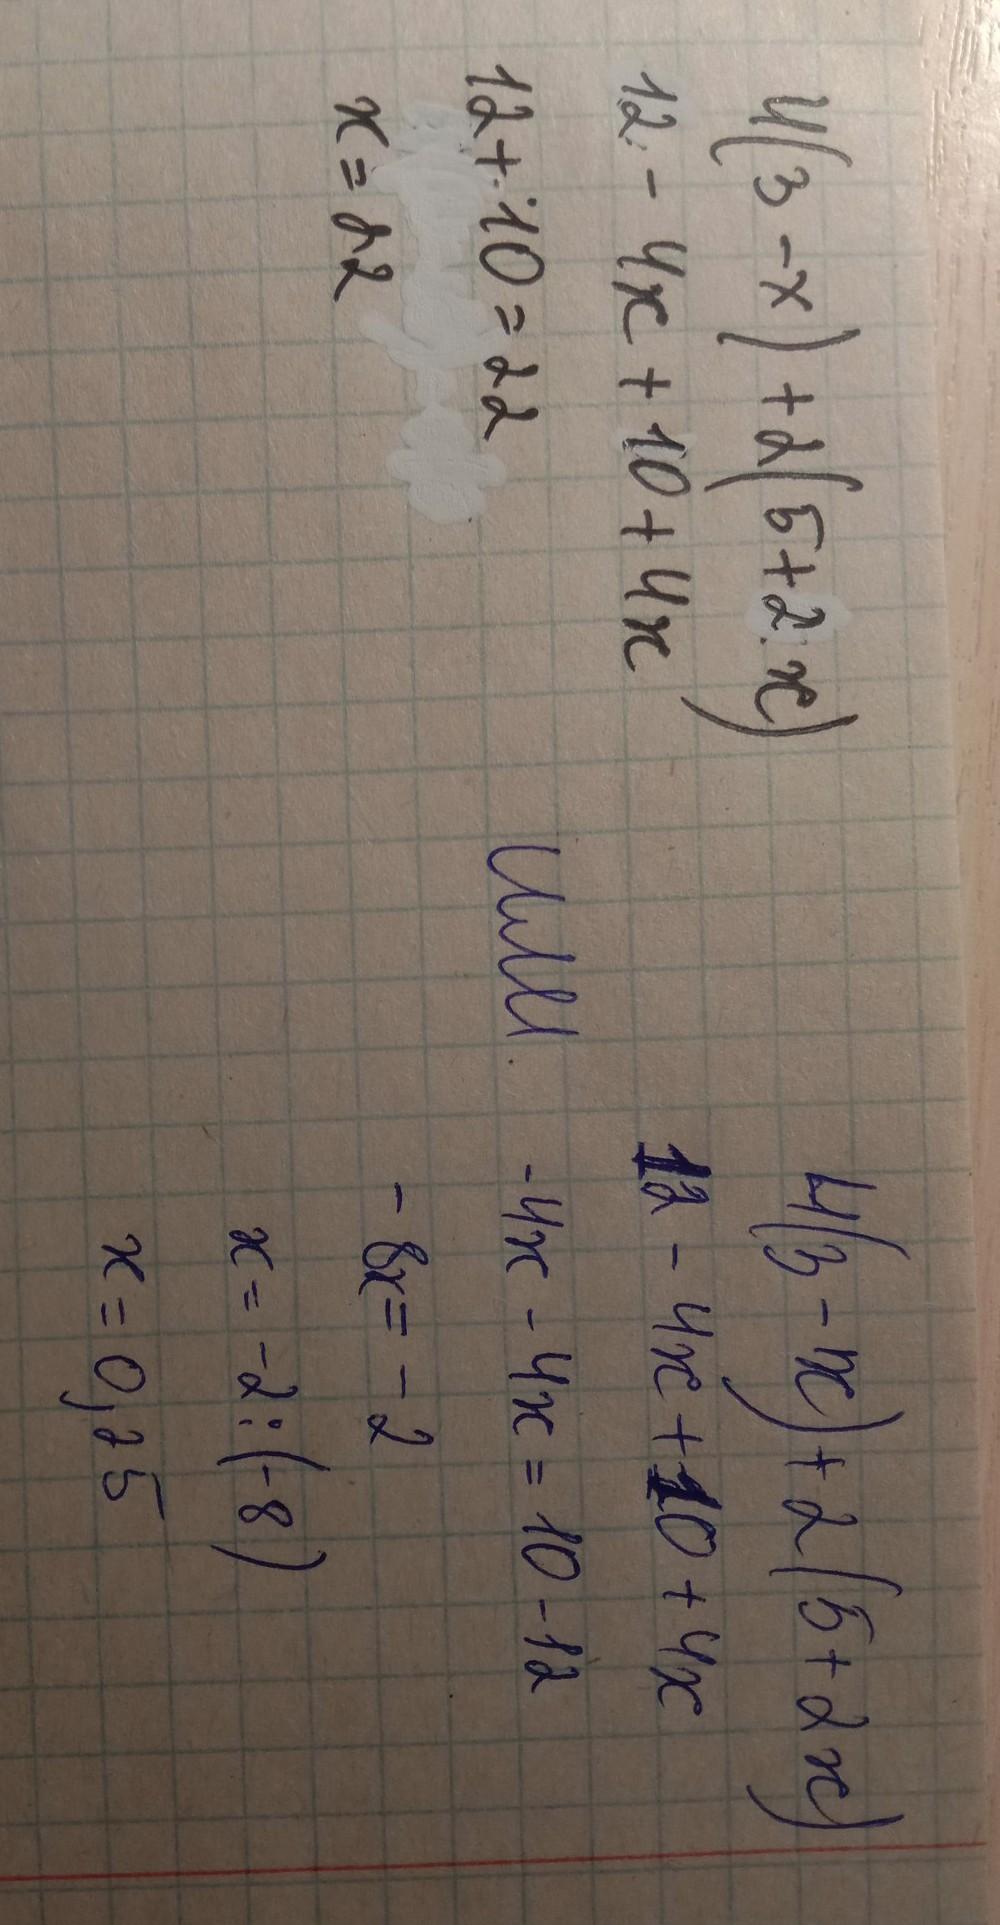 4(3-x)+2(5+2x)
12-4x+10+4x
12+10=22
x=22
или
4(3-x)+2(5+2x)
12-4x+10+4x
-4x-4x=10-12
-8x=-2
x=-2:(-8)
x=0,25